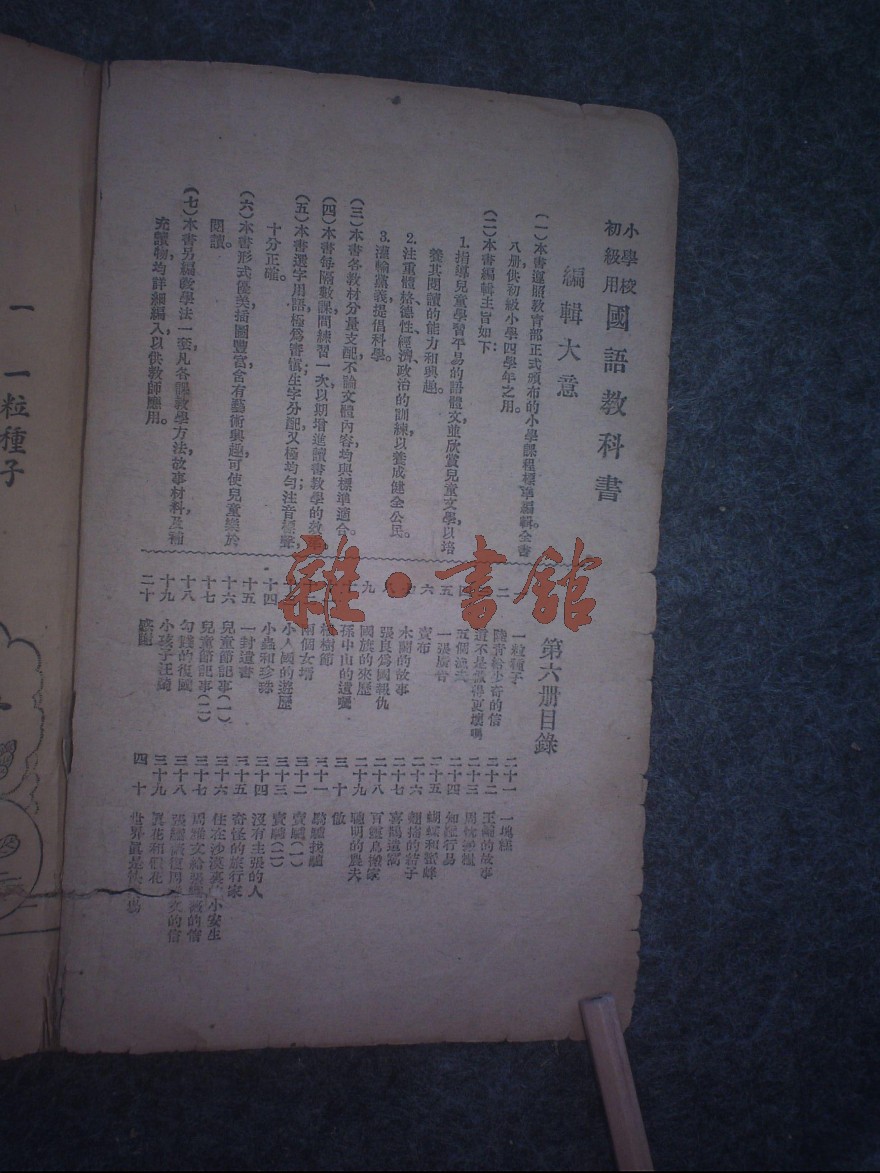 小學校
初級用
國語教科書
編輯大意
(一)本書遵照教育部正式頒布的小學課程標準編輯。全書
八册供初級小學四學年之用。
(二)本書編輯主旨如下：
1.指導兒童學習平易的語體文，並欣賞兒童文學，以培
養其閱讀的能力和興趣。
2.注重體格、德性、經濟、政治的訓練，以養成健全公民。
3.灌輸黨義，提倡科學。
(三)本書各教材分量支配，不論文體內容，均與標準適合。
(四)本書每隔數課間練習一次，以期增進讀書教學的效
(五)本書選字用語極爲審愼；生字分配又極均勻；注音標聲，
十分正確。
(六)本書形式優美，插圖豐富，含有藝術興趣，可使兒童樂於
閱讀。
(七)本書另編教學法一套，凡各課教學方法，故事材料，及補
充讀物，均詳細編入，以供教師應用。
第六册目錄
一粒種子
給少奇的信
六 賣布
木蘭的故事
張良爲國報仇
國旗的來歷
孫中山的遺囑
植樹節
兩個女壻
小人國的遊歷
十四 小蟲和珍珠
十五 一封遺書
十六 兒童節記事(一)
十七 兒童節記事(二)
十八 勾踐的復國
十九 小孩子汪錡
二十
二十一 一塊糕
二十二 的故事
二十三
二十四 知難行易
二十五 蝴蝶和蜜蜂
二十六 的精子
二十七 喜鵲造窩
二十八 百靈鳥搬家
二十九 聰明的農夫
三十
三十一 騎驢找驢
三十二 賣驢(一)
三十三 賣驢(二)
三十四 沒有主張的人
三十五 奇怪的旅行家
三十六 住在沙漠裏 小安生
三十七 的信
三十八 的信
三十九 眞花和假花
四十 世界眞是
一 一粒種子
雜·書館